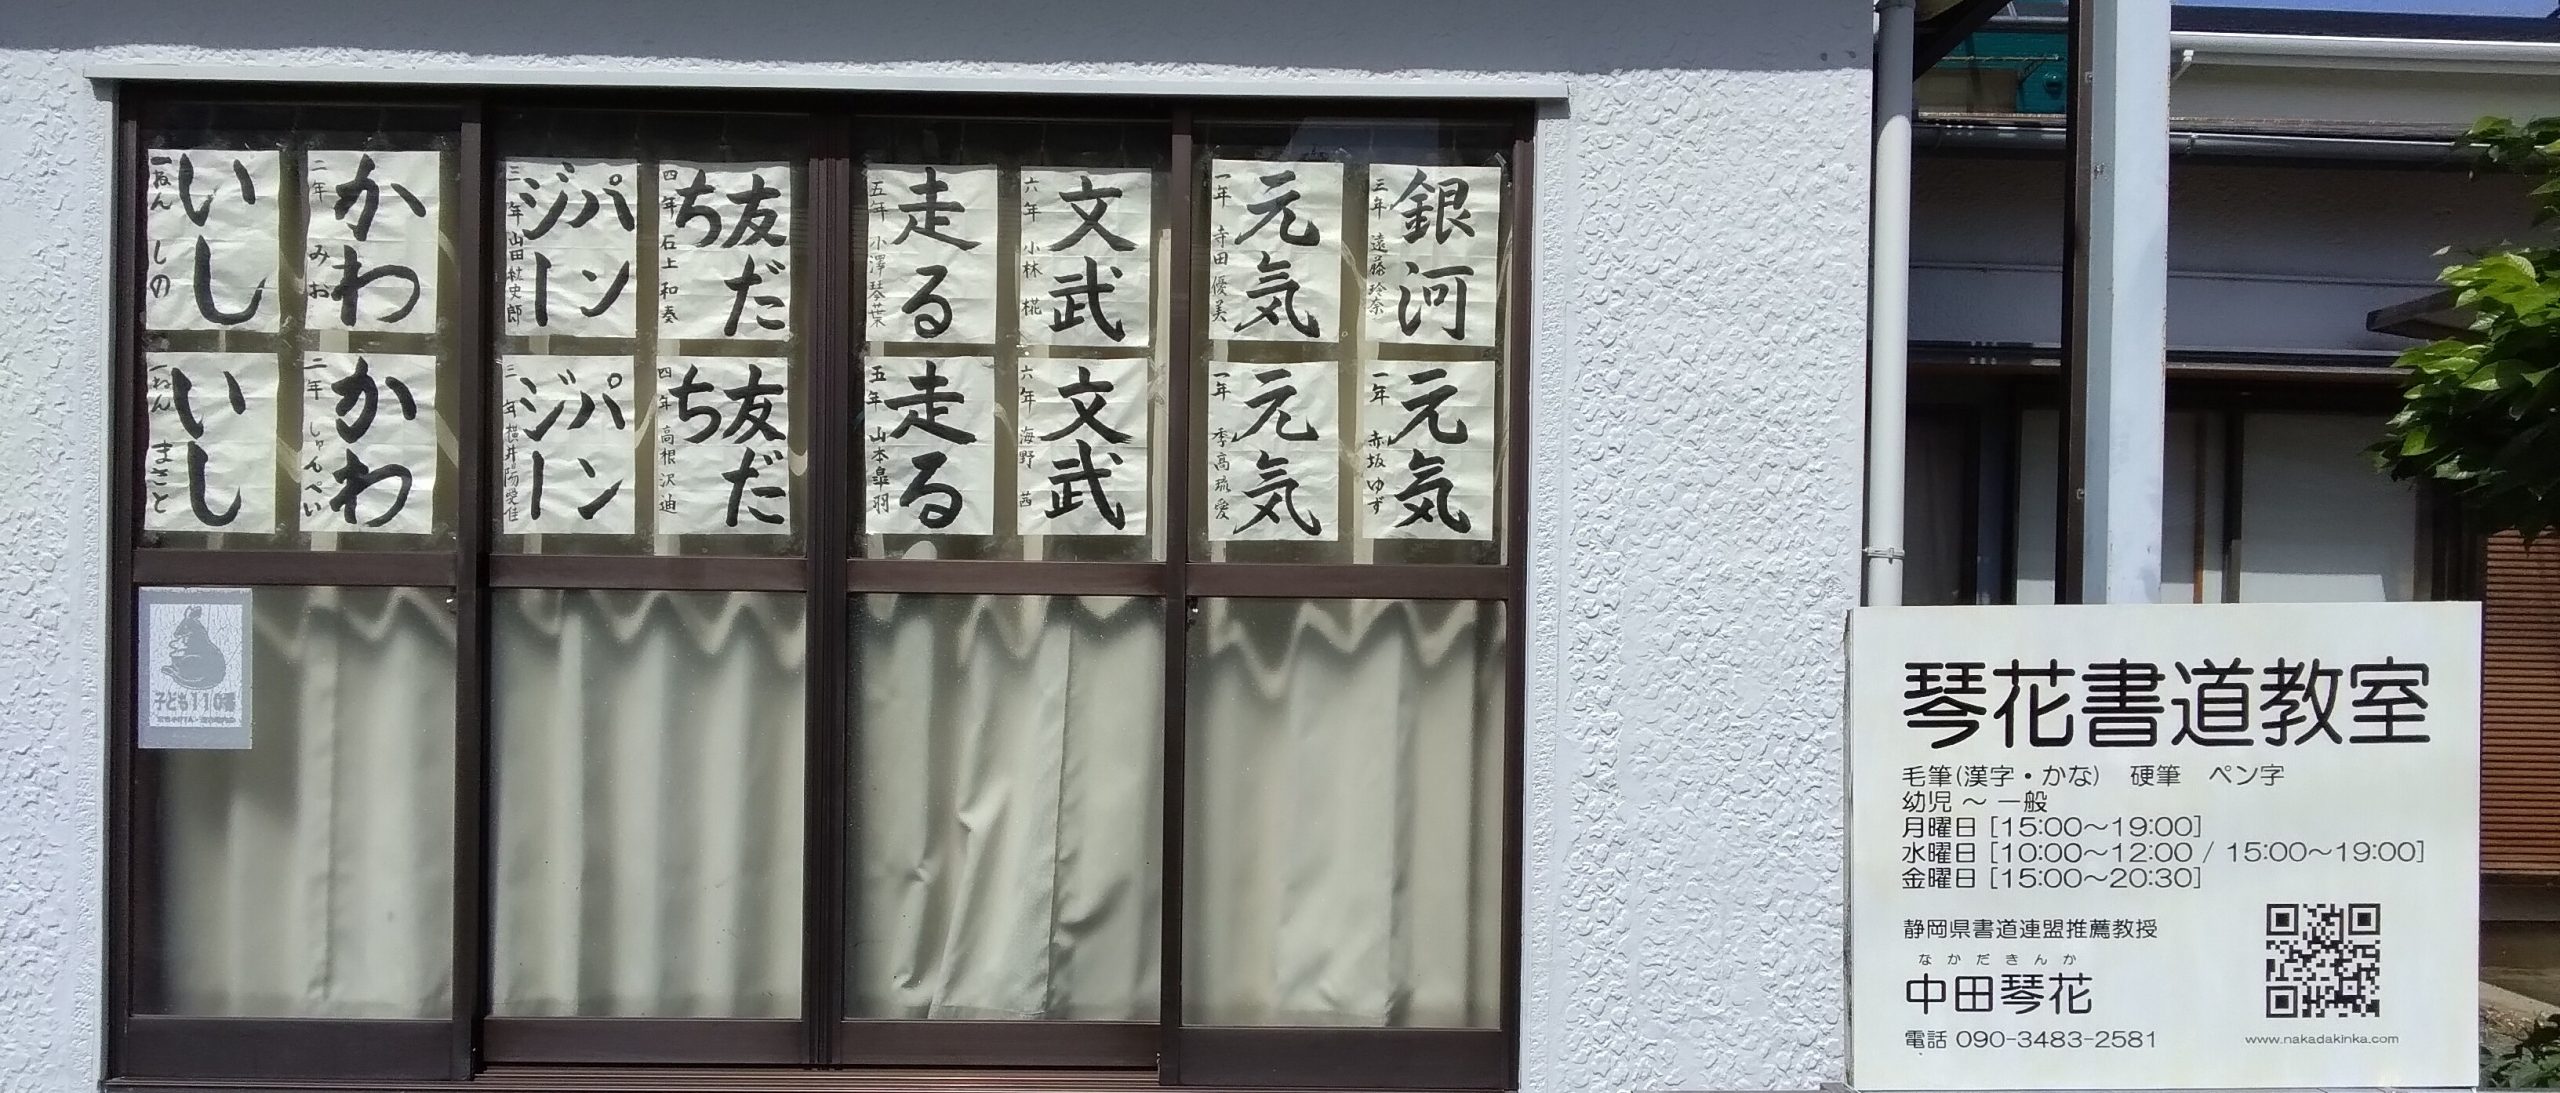 いし
一ねん しの
かわ
二年 みお
パン
ジー
三年 山田紘史郎
友だ
ち
四年 石上和奏
走る
五年 小澤琴葉
文武
六年 小林 椛
元気
一年 寺田優美
銀河
三年 遠藤玲奈
いし
一ねん まさと
かわ
二年 しゅんぺい
パン
ジー
三年 横井陽愛佳
友だ
ち
四年 高根沢迪
走る
五年 山本皐羽
文武
六年 海野 茜
元気
一年 季高琉愛
元気
一年 赤坂ゆず
子ども110番
琴花書道教室
毛筆(漢字・かな) 硬筆 ペン字
幼児 ～ 一般
月曜日 [15:00～19:00]
水曜日 [10:00～12:00 / 15:00～19:00]
金曜日 [15:00～20:30]
静岡県書道連盟推薦教授
なかだきんか
中田琴花
電話 090-3483-2581
www.nakadakinka.com